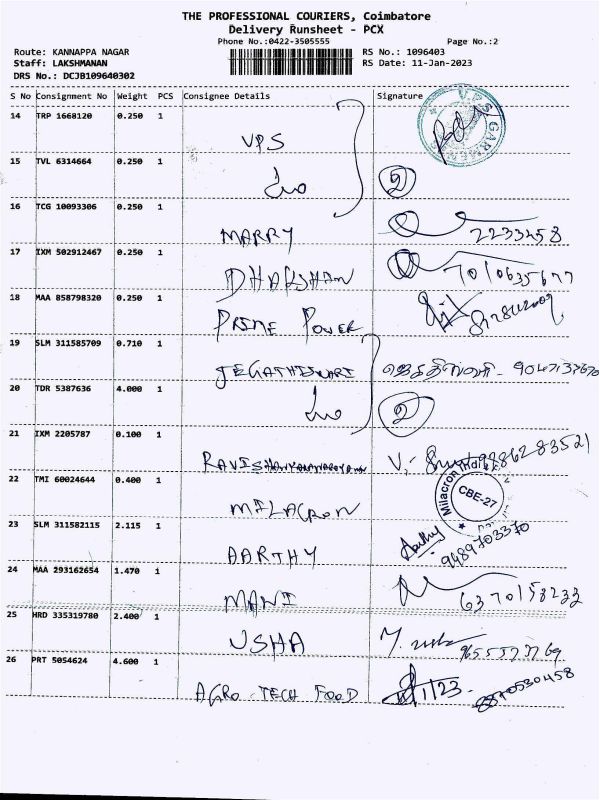 THE PROFESSIONAL COURIERS, Coimbatore
Delivery Runsheet - PCX
Phone No.:0422-3505555 Page No.:2
Route: KANNAPPA NAGAR RS No.: 1096403
Staff: LAKSHMANAN RS Date: 11-Jan-2023
DRS No.: DCJB109640302
S No Consignment No Weight PCS Consignee Details Signature
14 TRP 1668120 0.250 1 VPS
VPS GARMENTS
15 TVL 6314664 0.250 1 2
16 TCG 10093306 0.250 1 MARRY 2233458
17 IXM 502912467 0.250 1 DHARSHAN 7010635677
18 MAA 858798320 0.250 1 PRIME POWER
19 SLM 311585709 0.710 1 JEGATHISWARI
20 TDR 5387636 4.000 1 2
21 IXM 2205787 0.100 1 V.
22 TMI 60024644 0.400 1 MILACRON Milacron India CBE-27
23 SLM 311582115 2.115 1 AARTHY Aarthy 9489703370
24 MAA 293162654 1.470 1 MANI 6370158233
25 HRD 335319780 2.400 1 USHA
26 PRT 5054624 4.600 1 AGRO TECH FOOD